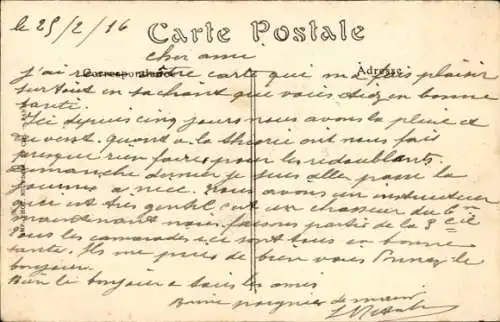 le 25/2/16
Carte Postale
Correspondance
Adresse
cher ami
J'ai reçu votre carte qui m'a fais plaisir
surtout en sachant que vous étiez en bonne
santé.
Ici depuis cinq jours nous avons la pluie et
du vent. Quant a la théorie ont nous fait
presque rien faire pour les redoublants.
Dimanche dernier je suis allé passé la
journée a nice. Nous avons un instructeur
qui est très gentil c'est un chasseur du 6e
maintenant nous faisons partie de la 8e Cie
tous les camarades ici sont tous en bonne
santé. Ils me prie de bien vous donnez le
bonjour.
Bien le bonjour a tous les amis
Bonne poignée de main